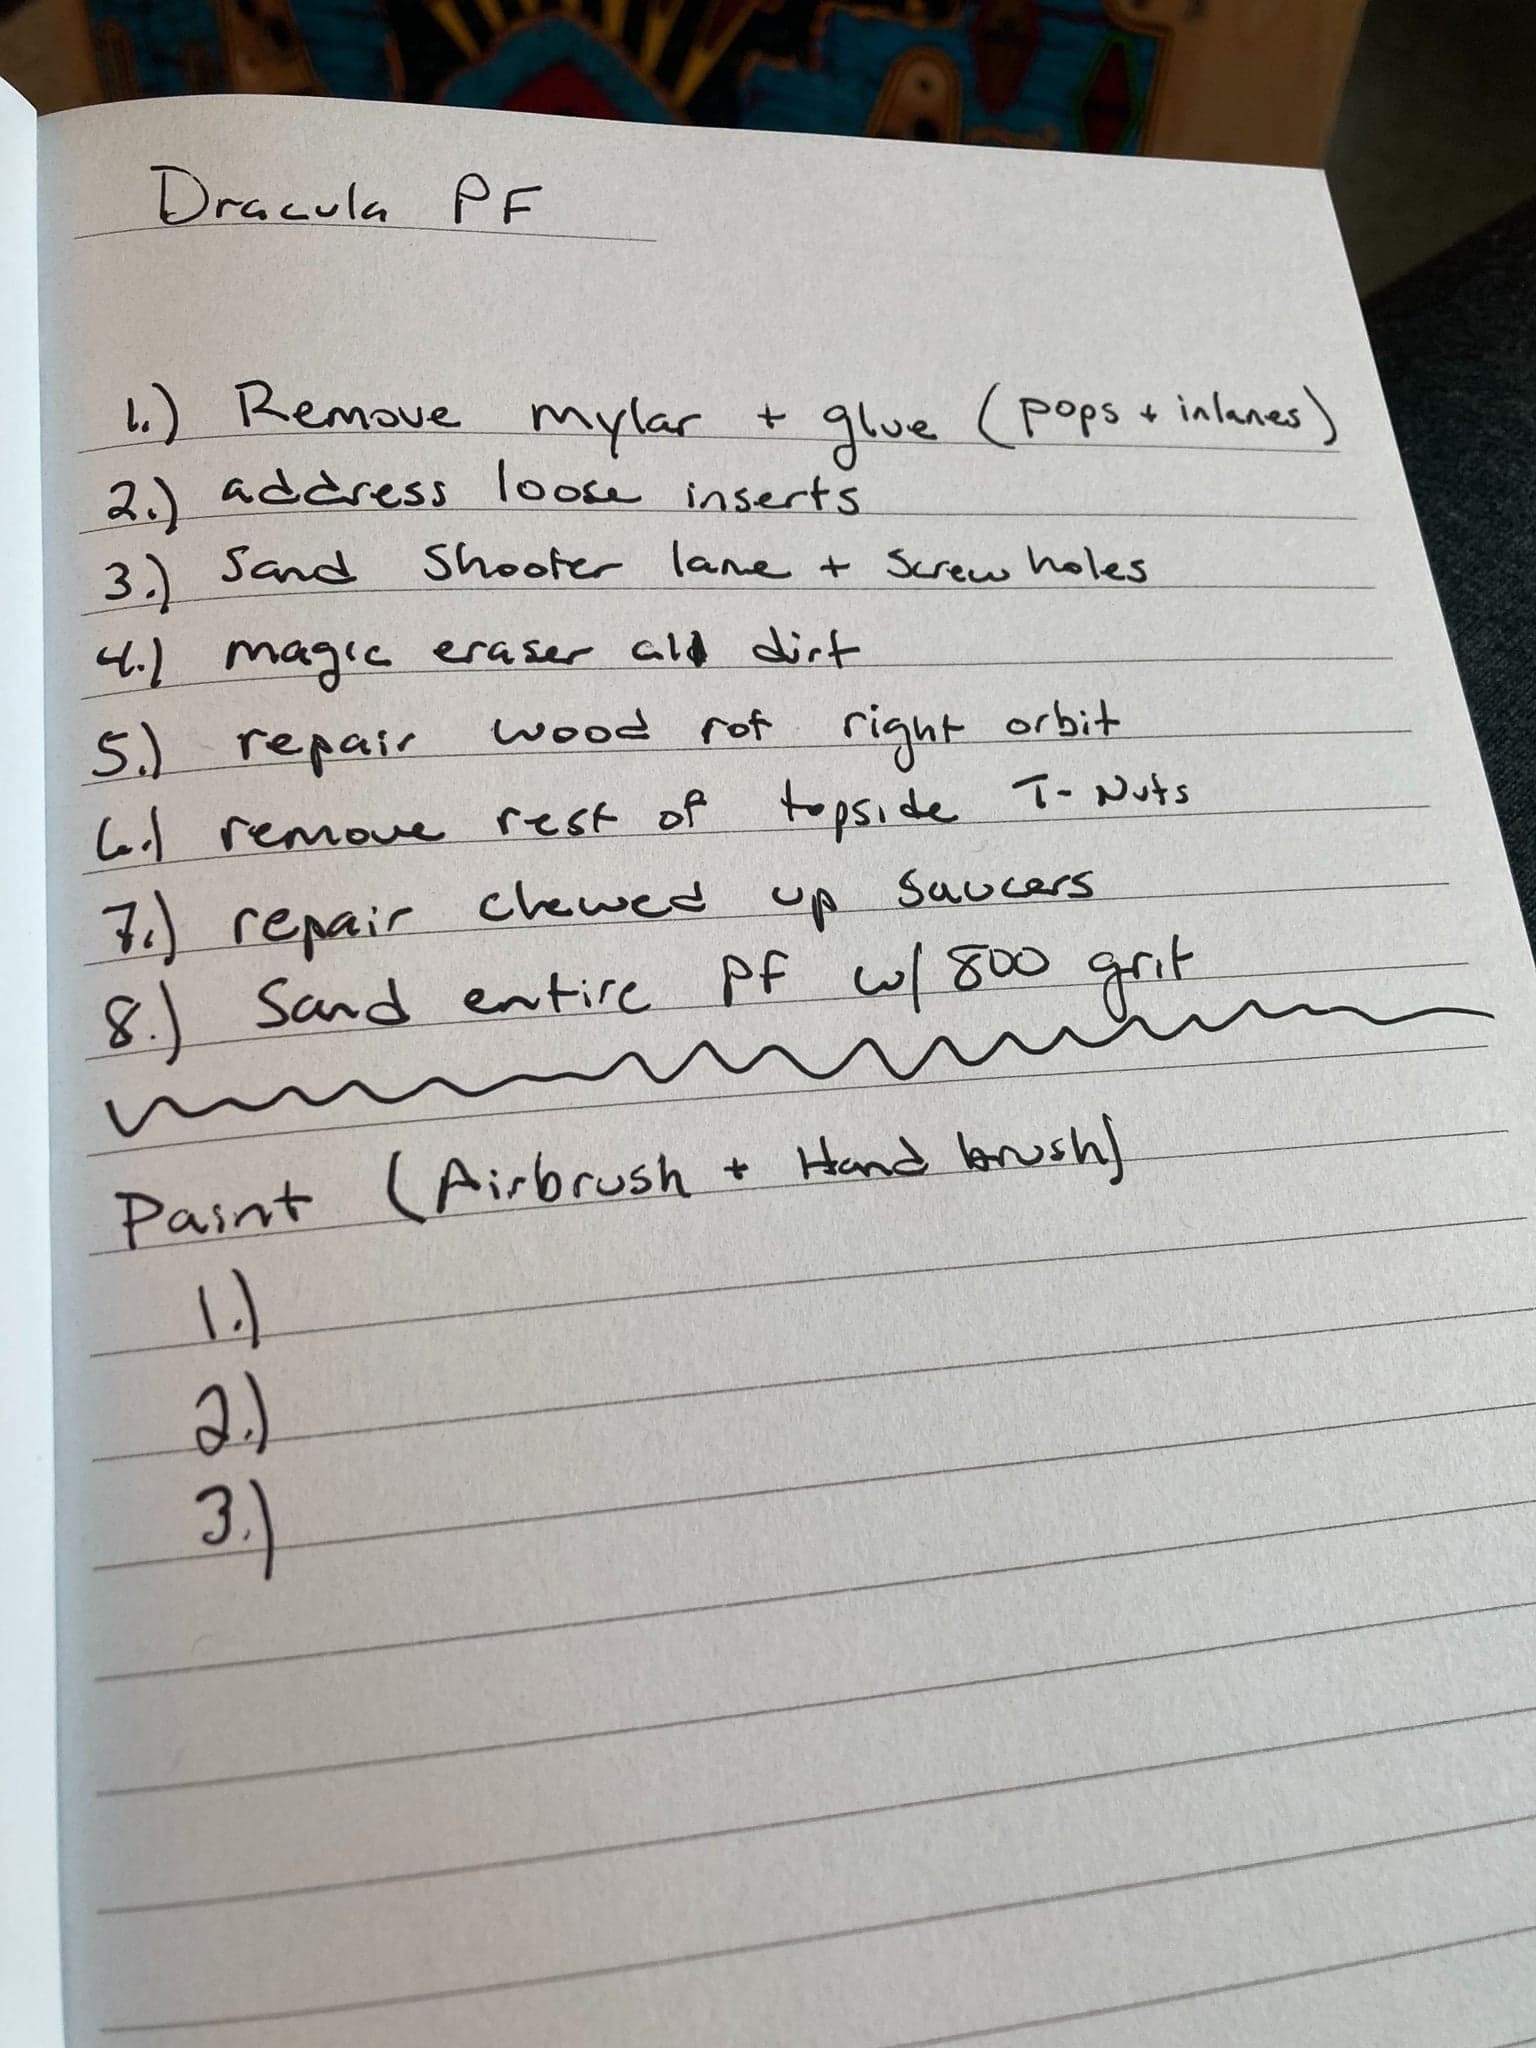 Dracula PF
1.) Remove mylar + glue (pops + inlanes)
2.) address loose inserts
3.) Sand Shooter lane + Screw holes
4.) magic eraser all dirt
5.) repair wood rot right orbit
6.) remove rest of topside T-Nuts
7.) repair chewed up saucers
8.) Sand entire PF w/ 800 grit
Paint (Airbrush + Hand brush)
1.)
2.)
3.)